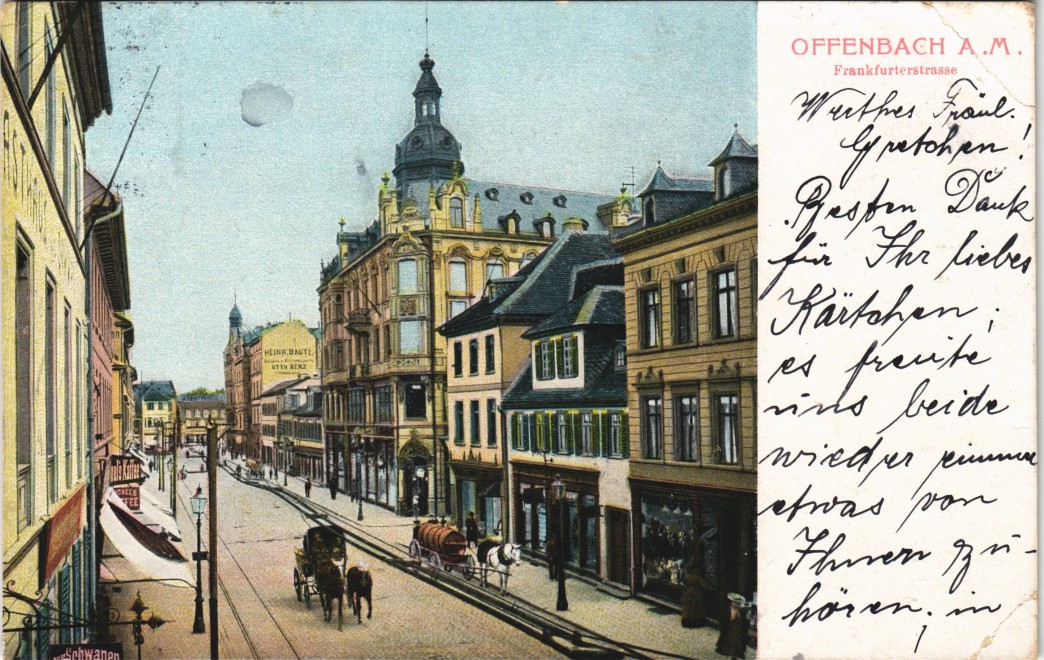 OFFENBACH A.M.
Frankfurterstrasse
Werthes Fräul.
Gretchen!
Besten Dank
für Ihr liebes
Kärtchen;
es freute
uns beide
wieder einmal
etwas von
Ihnen zu-
hören, in
HEINR. BAUTZ
OTTO BENZ
Kaffee
Schwanen